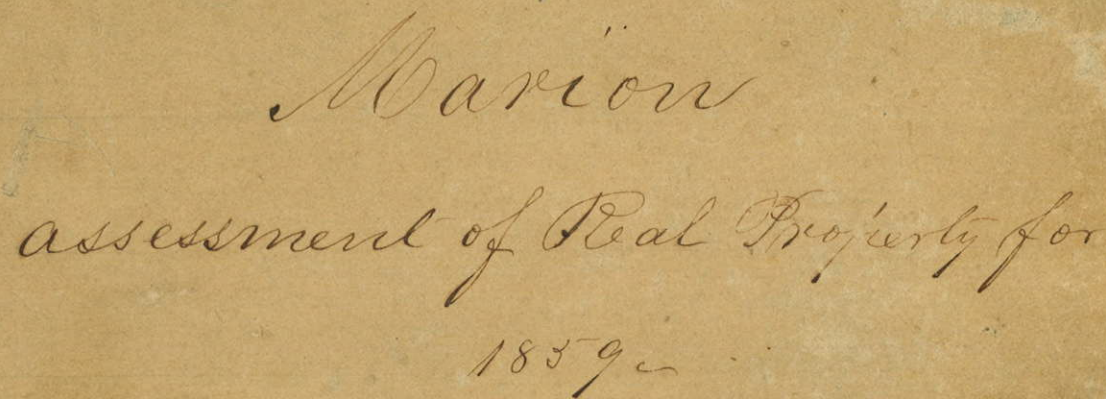 Marion
assessment of Real Property for
1859